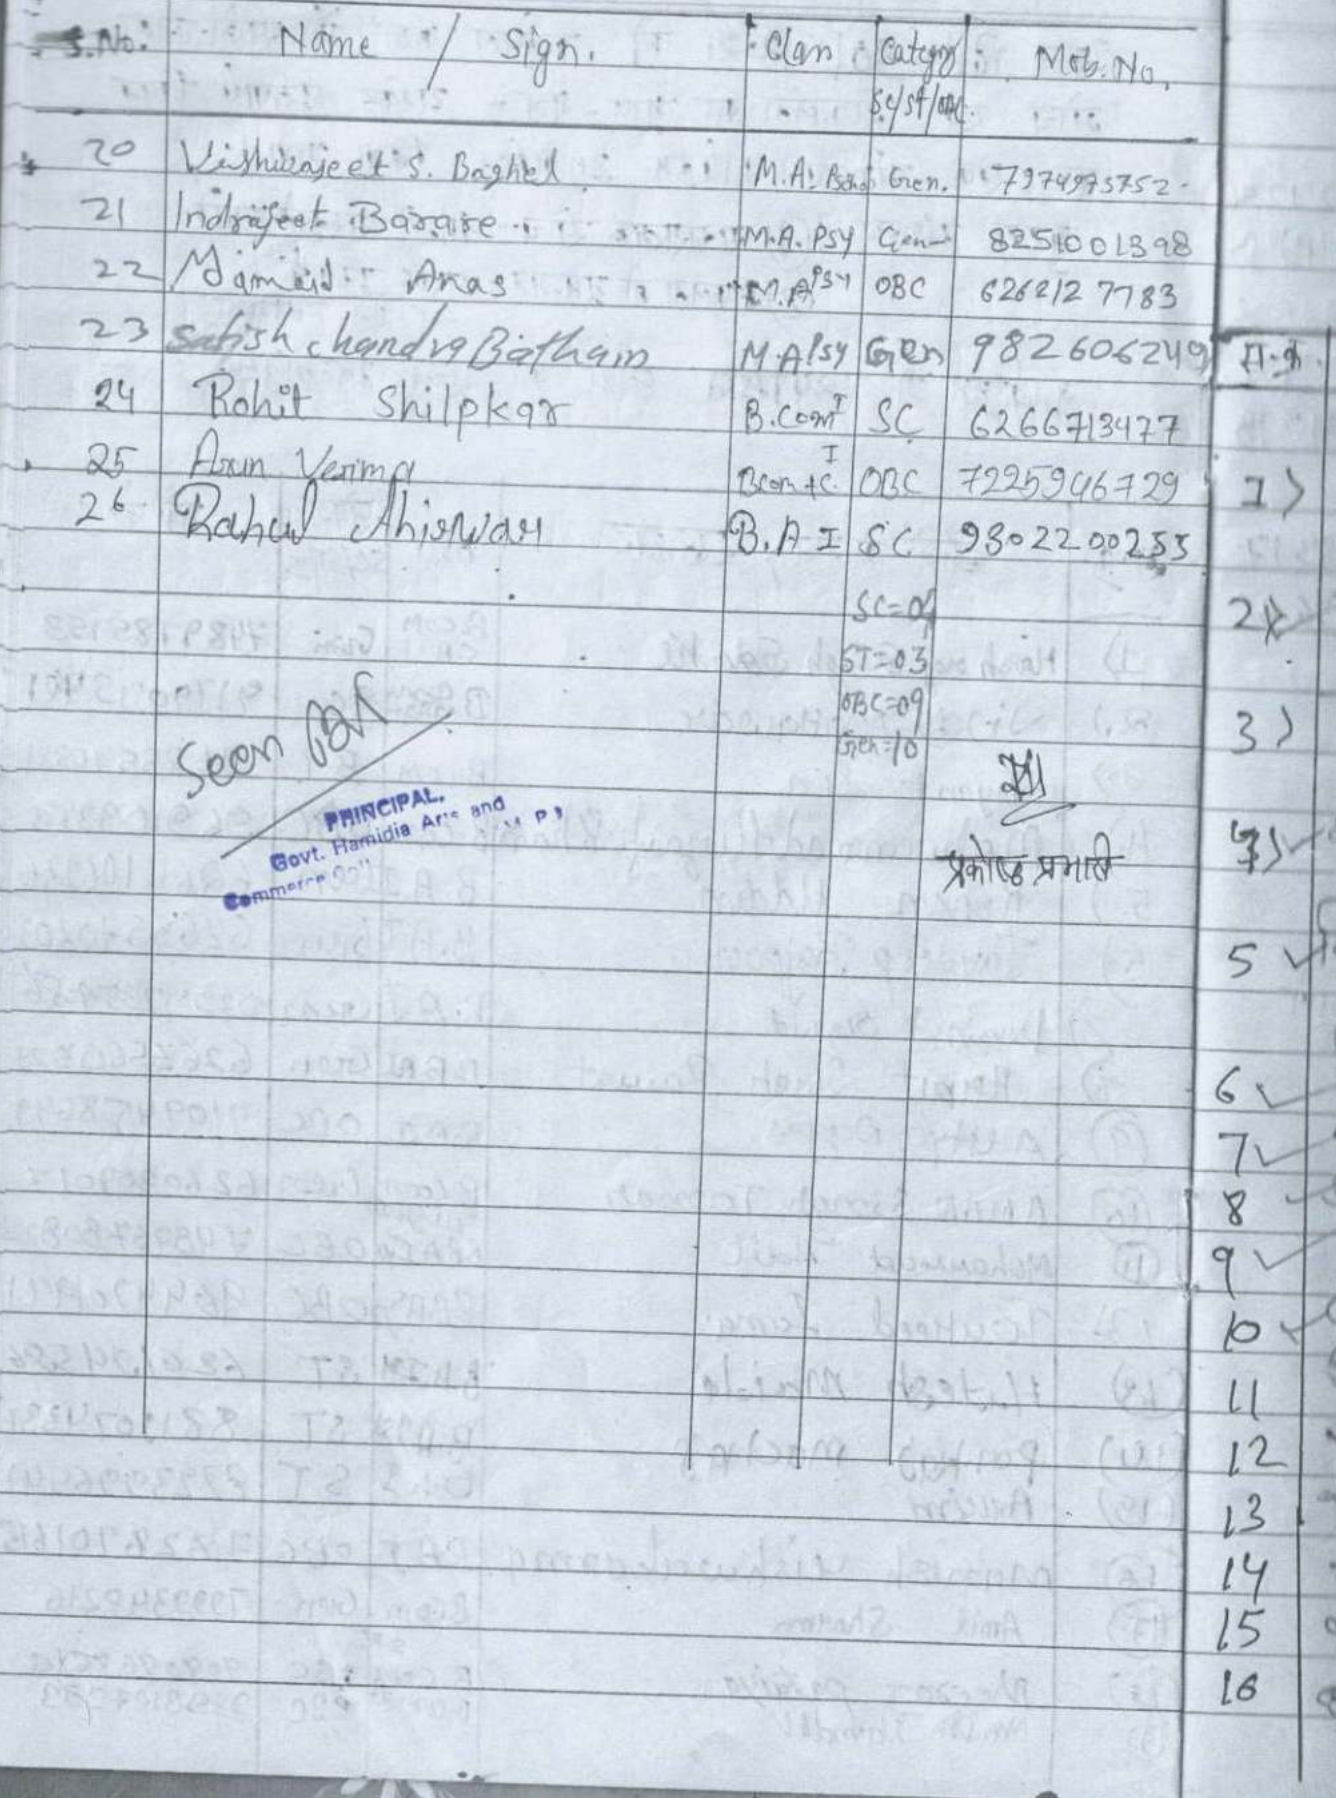 S.No. Name / Sign. Class Category Mob. No.
SC/ST/OBC.
20 Vishwajeet S. Baghel M.A. Gen. 7974975752
21 Indrajeet Barare M.A. PSY Gen 8251001398
22 Anas M.A PSY OBC 6262127783
23 Satish chandra Batham M.A PSY Gen 982606249
24 Rohit Shilpkar B.Com I SC 6266713477
25 Arun Verma Bcom+C. I OBC 7225946729
26 Rahul Ahirwar B.A I SC 9302200255
SC=04
ST=03
OBC=09
Gen=10
Seen
PRINCIPAL.
Govt. Hamidia Arts and
Commerce
प्रकोष्ठ प्रभारी
1)
2)
3)
5
6
7
8
9
10
11
12
13
14
15
16